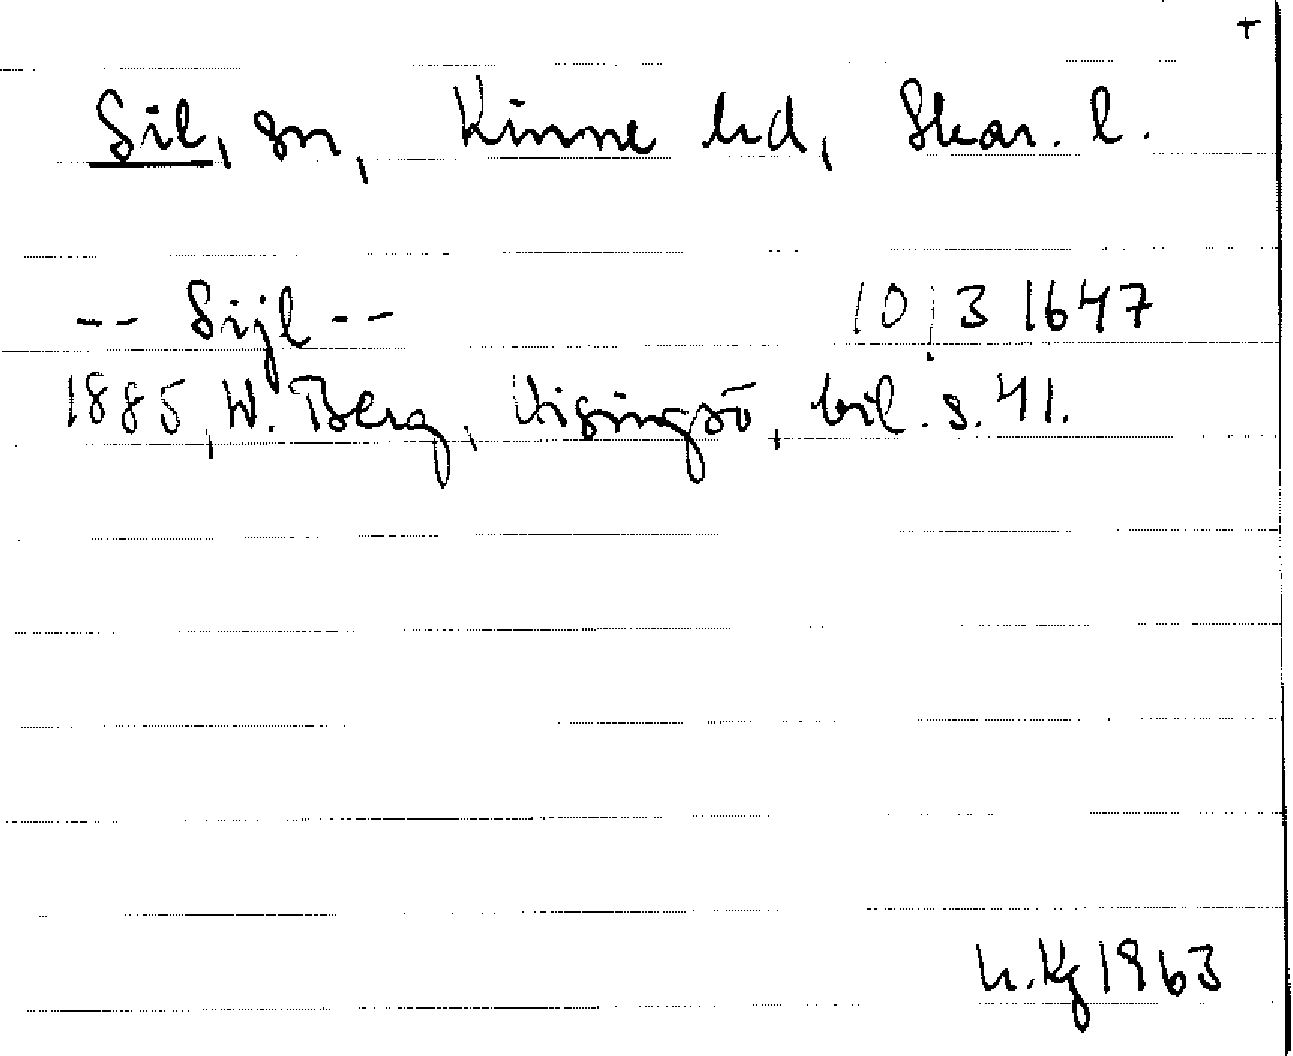 T
Sil, sn, Kinne hd, Skar. l.
-- Sijl -- 10/3 1647
1885, W. Berg, Visingsö, bil. s. 41.
1963